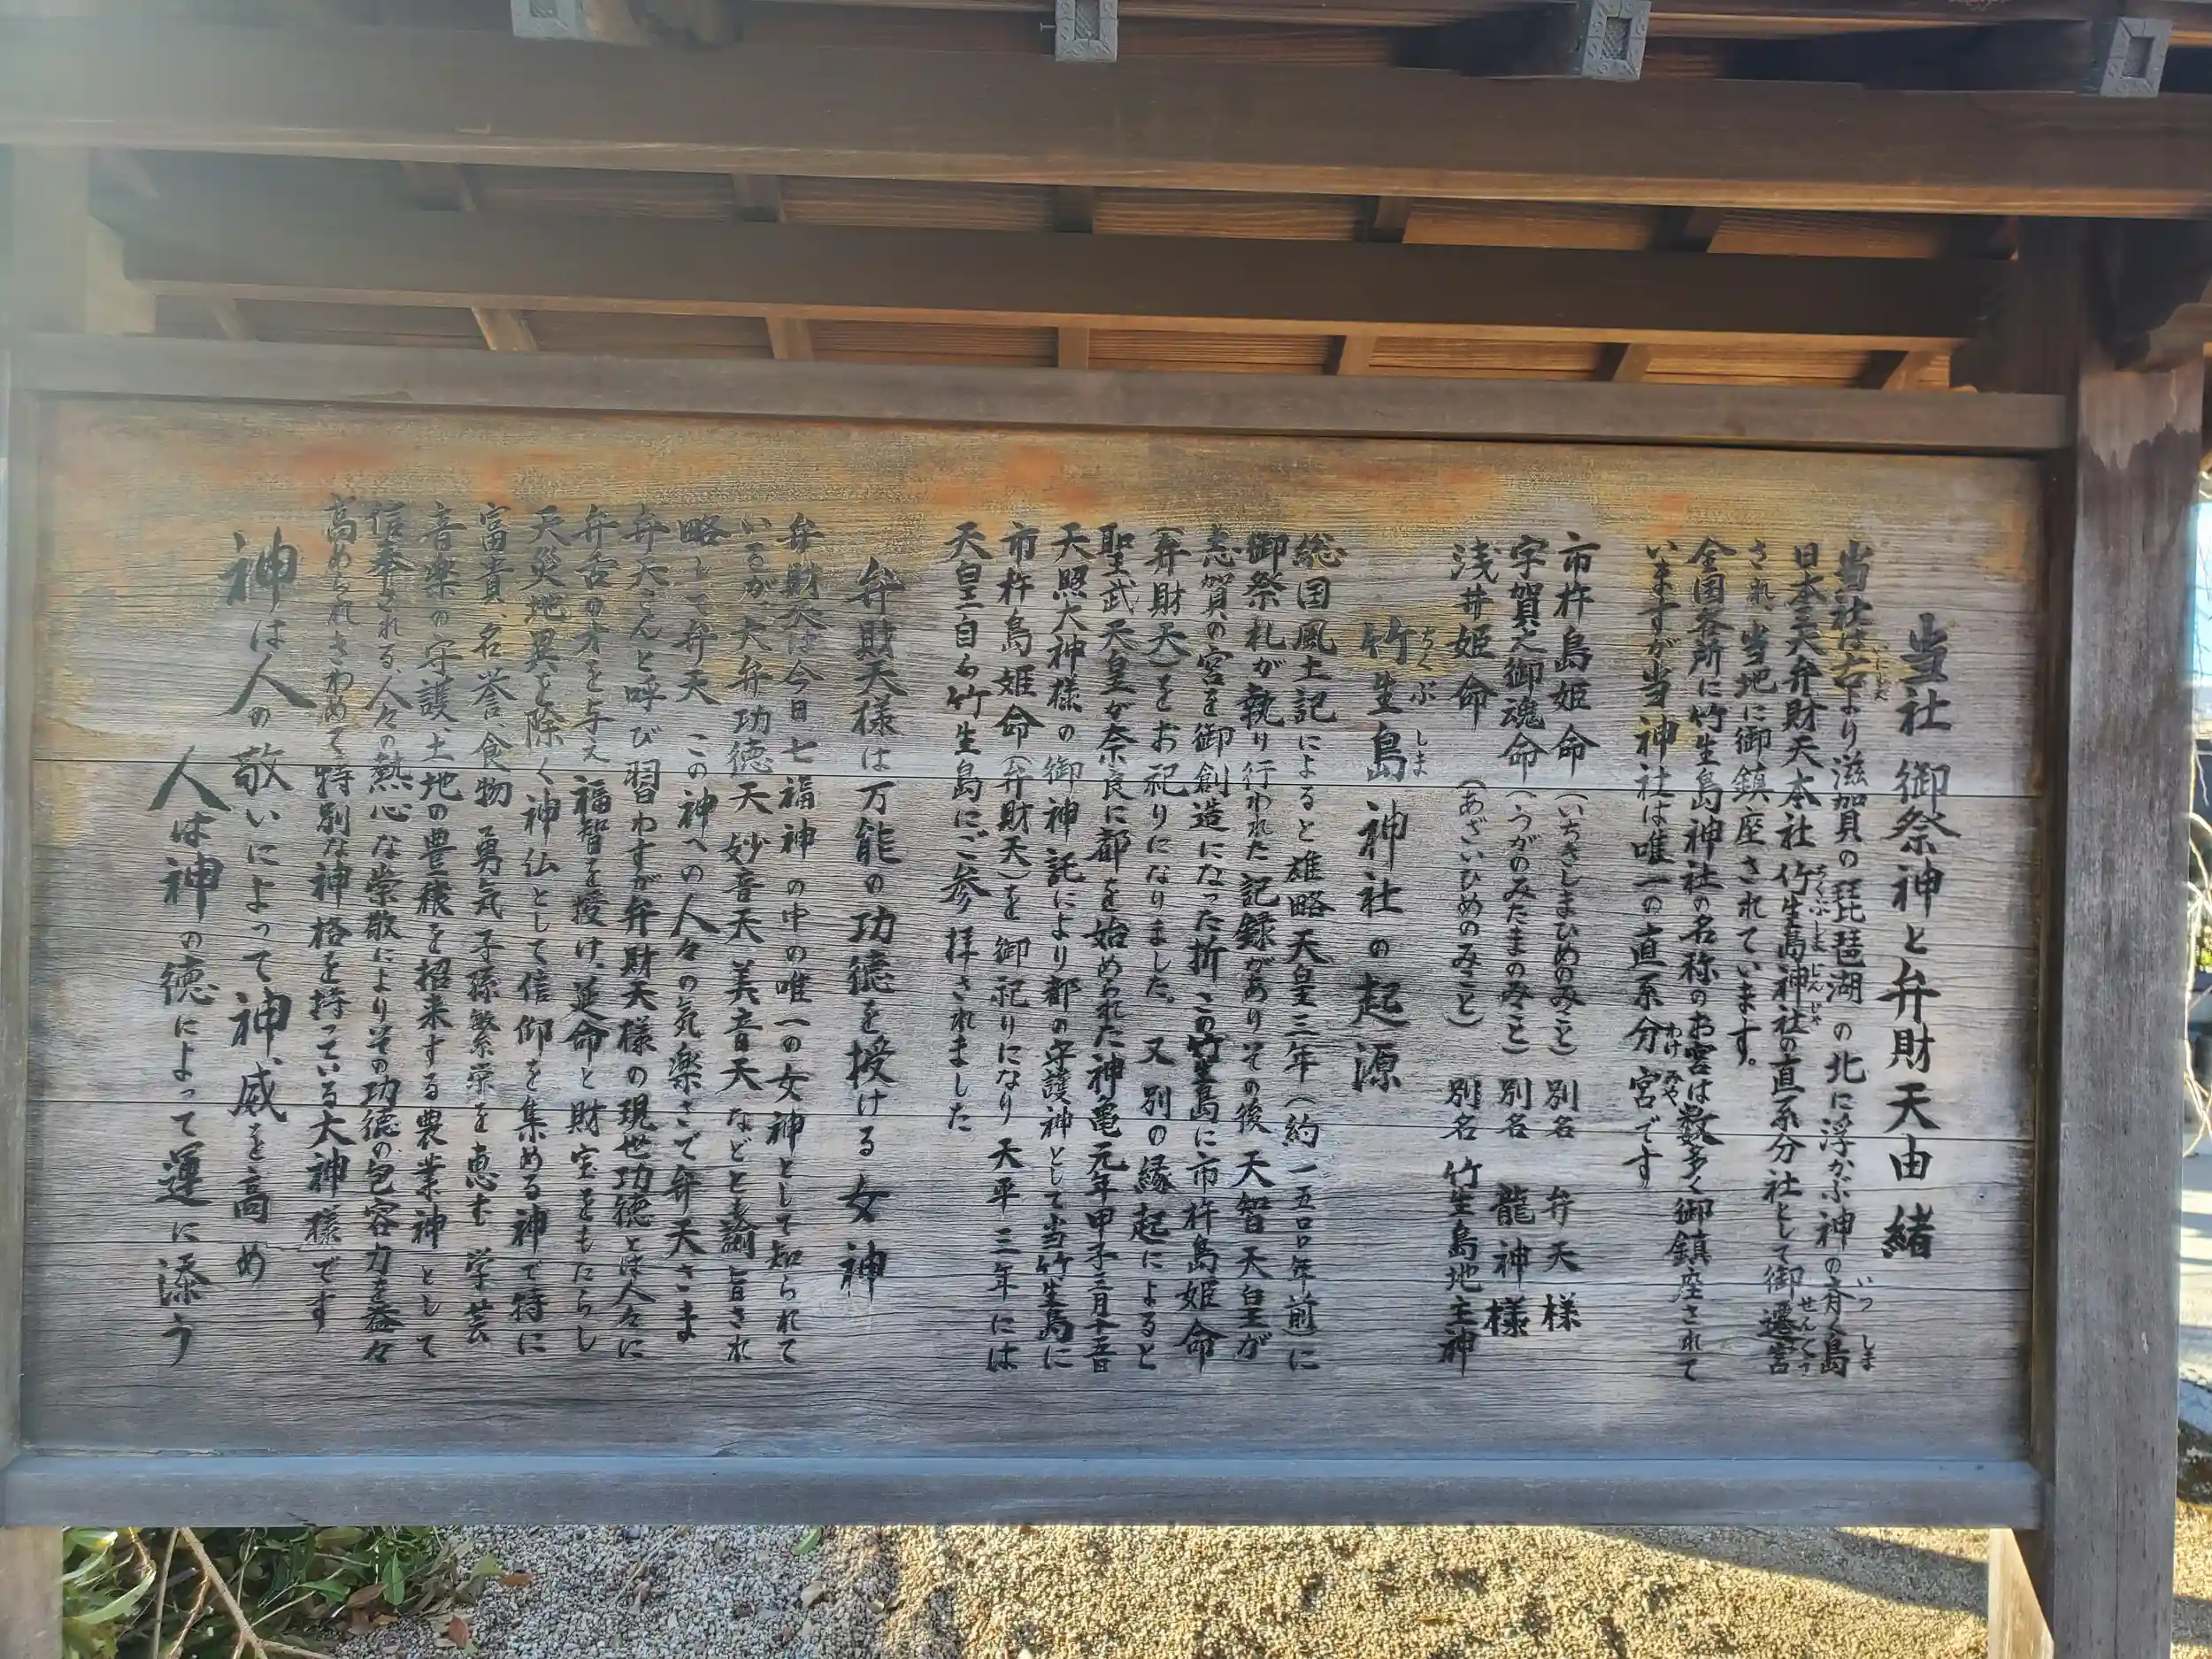 当社御祭神と弁財天由緒
当社は古より滋賀の琵琶湖の北に浮かぶ神の斎く島
日本三大弁財天本社竹生島神社の直系分社として御遷宮
され、当地に御鎮座されています。
全国各所に竹生島神社の名称のお宮は数多く御鎮座されて
いますが当神社は唯一の直系分宮です
市杵島姫命(いちきしまひめのみこと)別名 弁天様
宇賀之御魂命(うがのみたまのみこと)別名 龍神様
浅井姫命(あざいひめのみこと)別名 竹生島地主神
竹生島神社の起源
総国風土記によると雄略天皇三年(約一五〇〇年前)に
御祭札が執り行われた記録がありその後天智天皇が
志賀の宮を御創造になった折この竹生島に市杵島姫命
(弁財天)をお祀りになりました。又別の縁起によると
聖武天皇が奈良に都を始められた神亀元年甲子三月十五日
天照大神様の御神託により都の守護神として当竹生島に
市杵島姫命(弁財天)を御祀りになり天平三年には
天皇自ら竹生島にご参拝されました
弁財天様は万能の功徳を授ける女神
弁財天は今日七福神の中の唯一の女神として知られて
いるが、大弁功徳天 妙音天 美音天などと諭旨され
略して弁天 この神への人々の気楽さで弁天さま
弁天さんと呼び習わすが弁財天様の現世功徳とは人々に
弁舌の才を与え 福智を授け、延命と財宝をもたらし
天災地異を除く神仏として信仰を集める神で特に
富貴、名誉、食物 勇気 子孫繁栄を恵む 学芸
音楽の守護、土地の豊穣を招来する農業神として
信奉される、人々の熱心な崇敬によりその功徳の包容力を益々
高められきわめて特別な神格を持っている大神様です
神は人の敬いによって神威を高め
人は神の徳によって運に添う